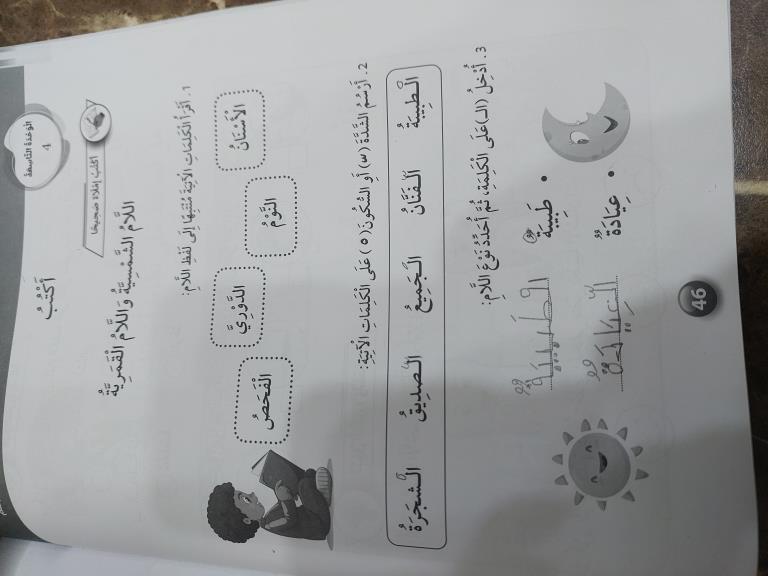 الوَحْدَةُ التّاسِعَةُ
4
أَكْتُبُ
أَكْتُبُ إِمْلَاءً صَحِيحًا
اللَّامُ الشَّمْسِيَّةُ وَاللَّامُ الْقَمَرِيَّةُ
1. أَقْرَأُ الْكَلِمَاتِ الْآتِيَةَ مُنْتَبِهًا إِلَى لَفْظِ اللَّامِ:
الْأَسْنَانُ النَّوْمُ الدَّوْرِيُّ الْفَحْصُ
2. أَرْسُمُ الشَّدَّةَ (ّ) أَوِ السُّكُونَ (ْ) عَلَى الْكَلِمَاتِ الْآتِيَةِ:
الطَبِيبَةُ الفَنَّانُ الجَمِيعُ الصَدِيقُ الشجَرَةُ
3. أُدْخِلُ (الـ) عَلَى الْكَلِمَةِ، ثُمَّ أُحَدِّدُ نَوْعَ اللَّامِ:
• طَبِيبَةٌ الطَّبِيبَةُ
• عِيَادَةٌ العِيَادَةُ
46